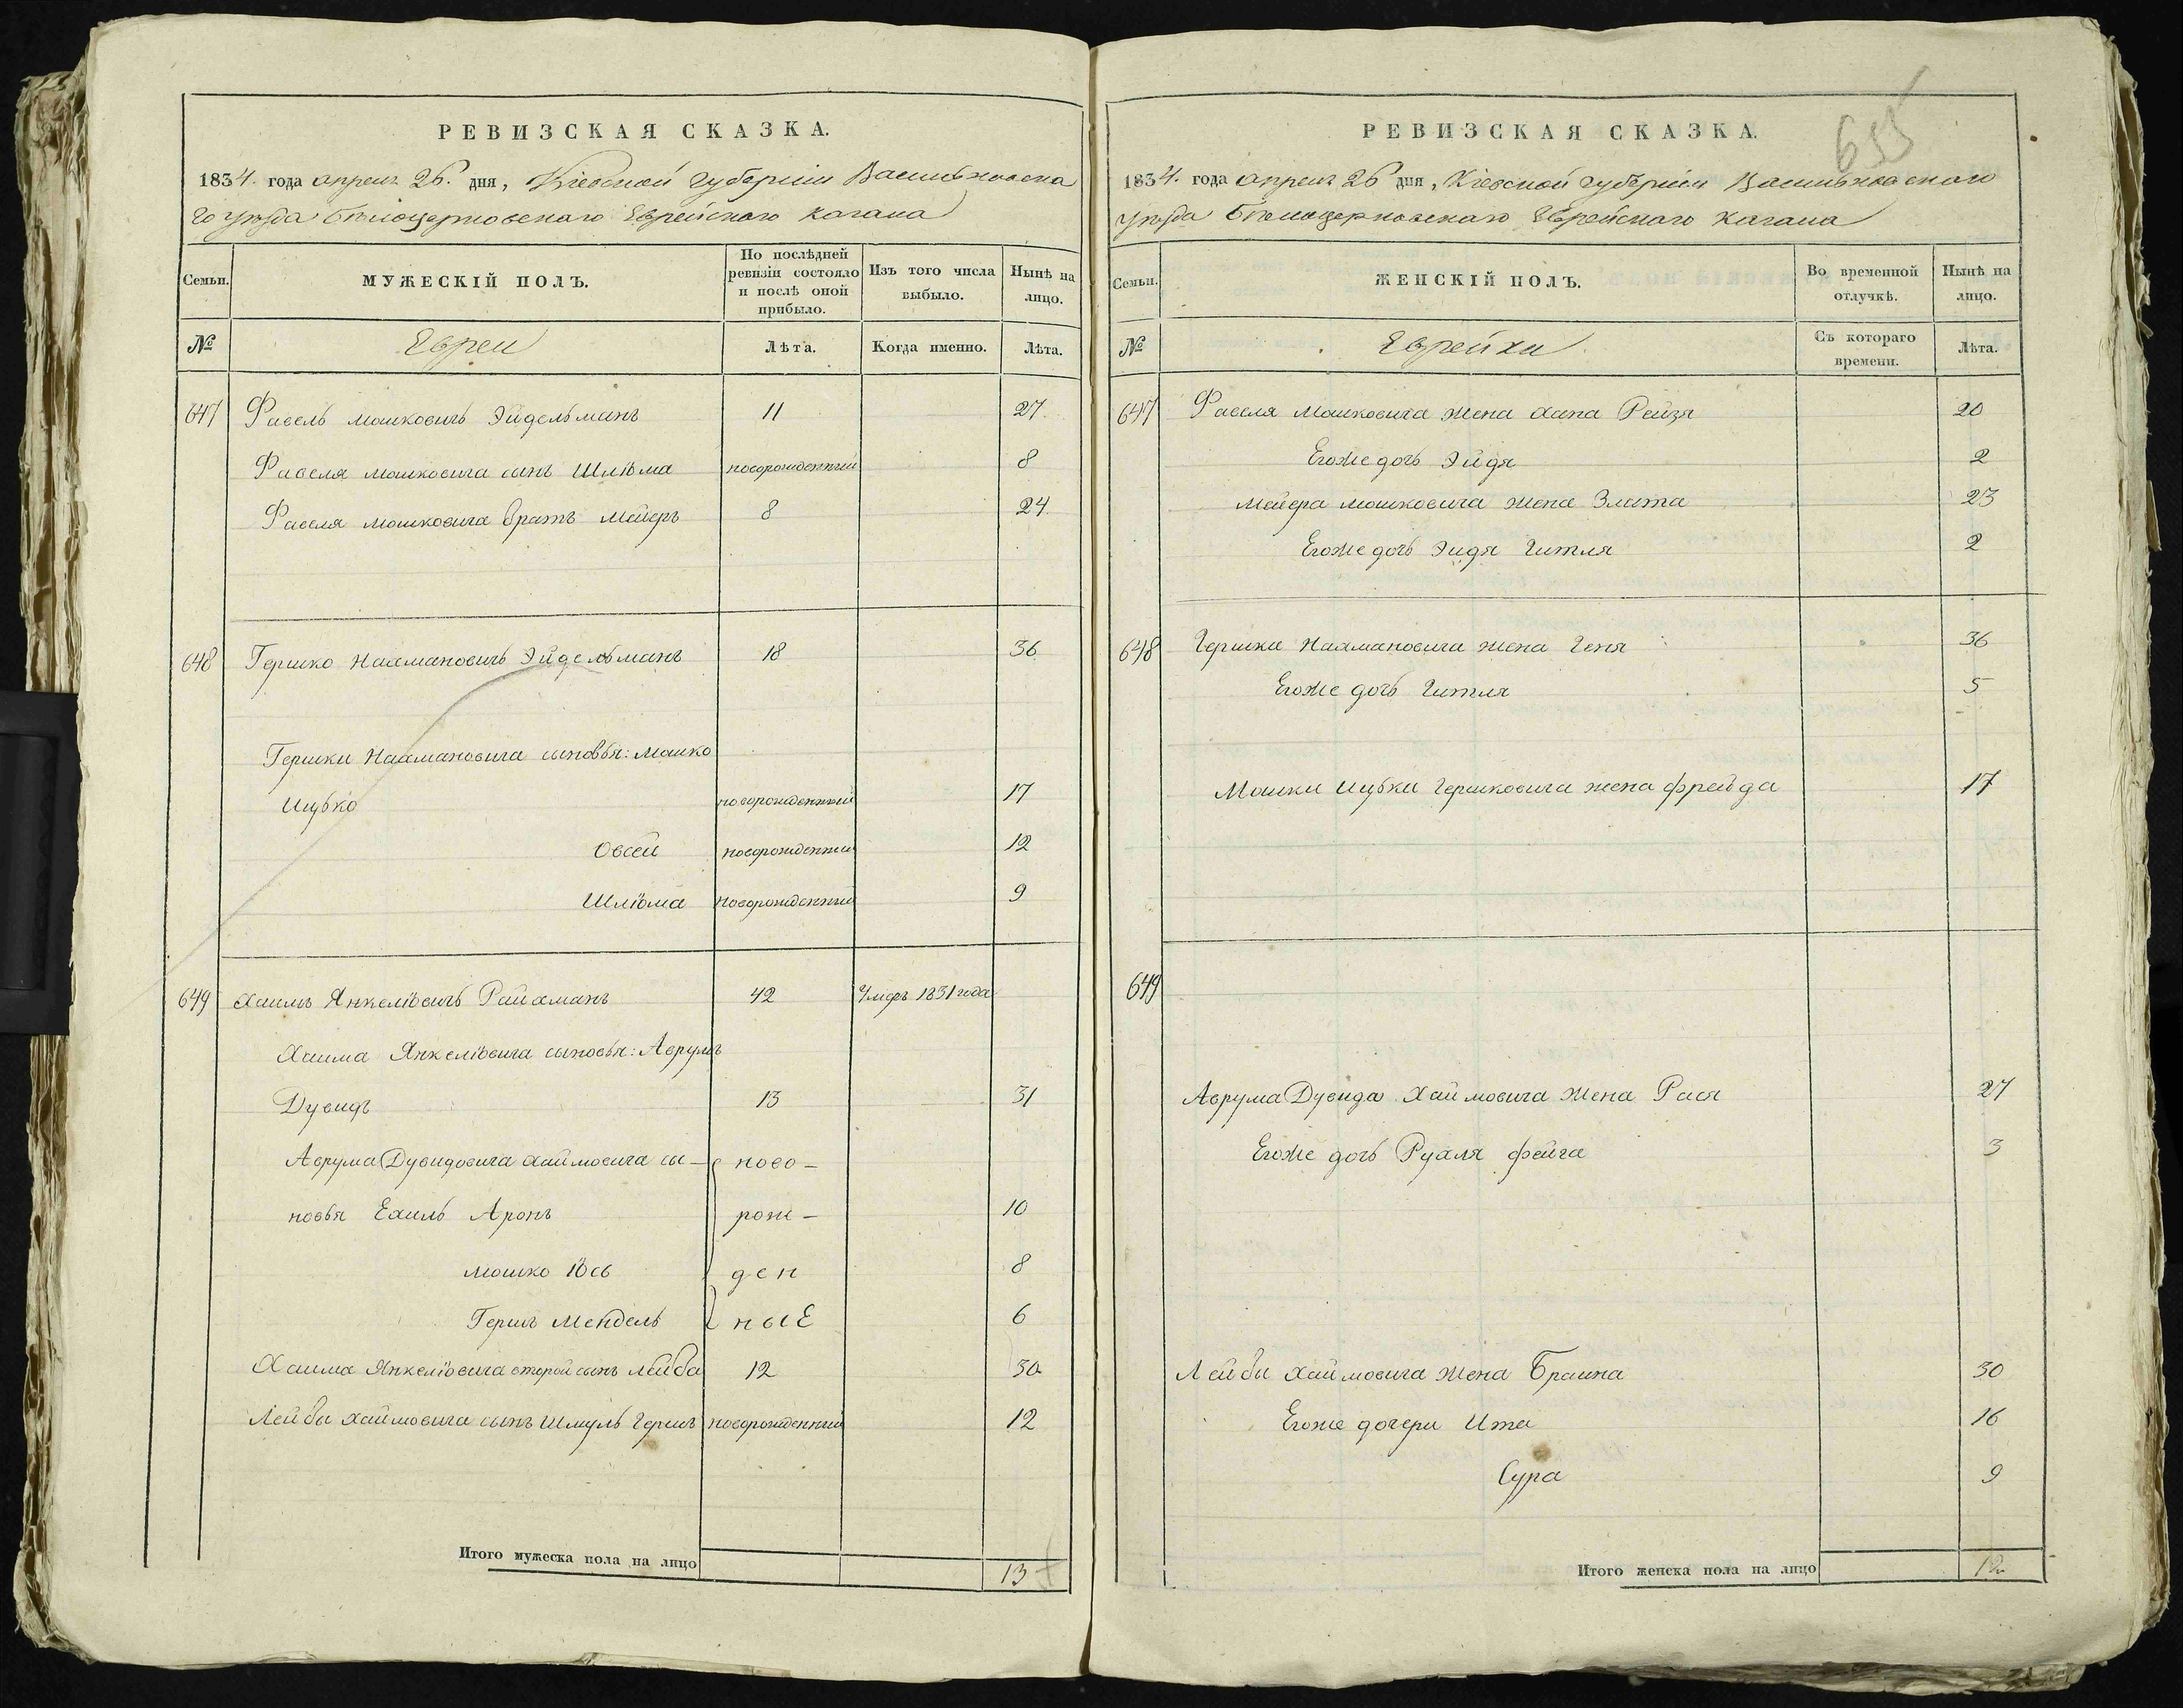 РЕВИЗСКАЯ СКАЗКА.
1834. года апреля 26. дня, Кіевской губерніи Васильковска
го уѣзда Бѣлоцерковскаго Еврейскаго кагала
Семьи.
МУЖЕСКІЙ ПОЛЪ.
По послѣдней ревизіи состояло и послѣ оной прибыло.
Изъ того числа выбыло.
Нынѣ на лицо.
№
Евреи
Лѣта.
Когда именно.
Лѣта.
647 Фавель Мошковичь Эйдельманъ 11 27
Фавеля Мошковича сынъ Шліома новорожденный 8
Фавеля Мошковича братъ Мейеръ 8 24
648 Гершко Нахмановичь Эйдельманъ 18 36
Гершки Нахмановича сыновья: Мошко
Ицько новорожденный 17
Овсей новорожденный 12
Шліома новорожденный 9
649 Хаимъ Янкеліовичь Райхманъ 42 Умеръ 1831 года
Хаима Янкеліовича сыновья: Аврумъ
Дувидъ 13 31
Аврума Дувидовича Хаймовича сы- ново-
новья Ехиль Аронъ рож- 10
Мошко Іось ден 8
Гершъ Мендель ные 6
Хаима Янкеліовича второй сынъ Лейба 12 30
Лейбы Хаймовича сынъ Шмуль Гершъ новорожденный 12
Итого мужеска пола на лицо 13
655
РЕВИЗСКАЯ СКАЗКА.
1834. года апреля 26 дня, Кіевской губерніи Васильковскаго
уѣзда Бѣлоцерковскаго Еврейскаго кагала
Семьи.
ЖЕНСКІЙ ПОЛЪ.
Во временной отлучкѣ.
Нынѣ на лицо.
№
Еврейки
Съ котораго времени.
Лѣта.
647 Фавеля Мошковича жена Хана Рейзя 20
Егоже дочь Эйдя 2
Мейера Мошковича жена Злата 23
Егоже дочь Эидя Гитля 2
648 Гершки Нахмановича жена Геня 36
Егоже дочь Гитля 5
Мошки Ицьки Гершковича жена фрейда 17
649
Аврума Дувида Хаймовича жена Рася 27
Егоже дочь Рухля фейга 3
Лейбы Хаймовича жена Браина 30
Егоже дочери Ита 16
Сура 9
Итого женска пола на лицо 12